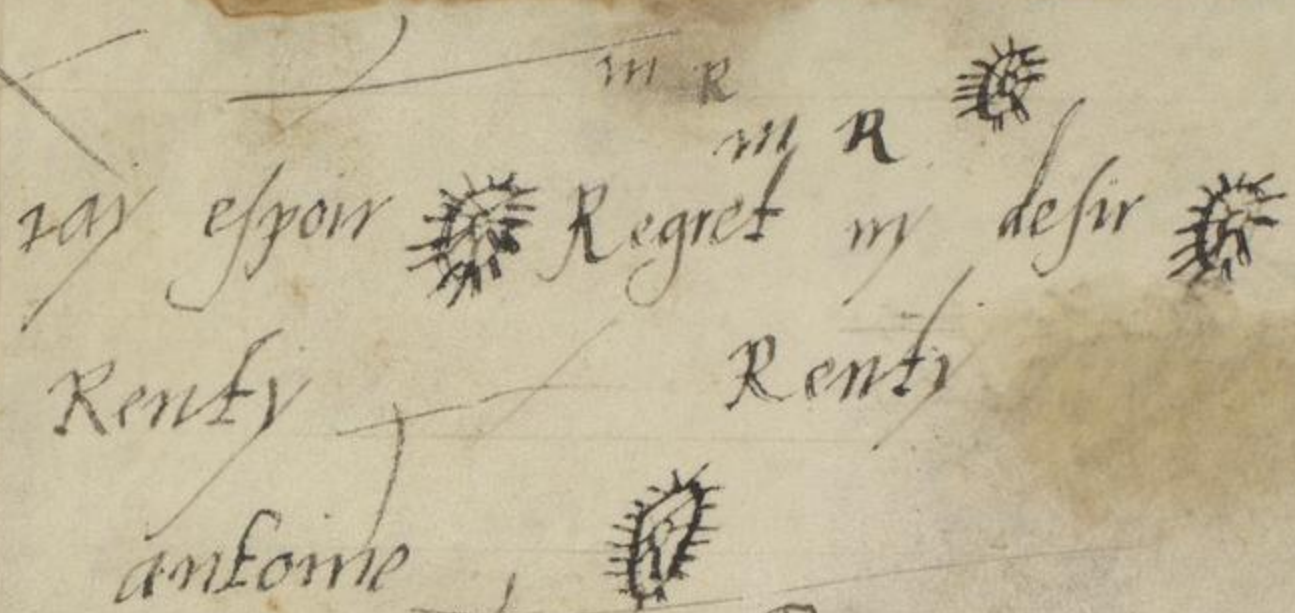 m R
m R
iaẏ eſpoir Regret nẏ deſir
Renty Renty
antoine